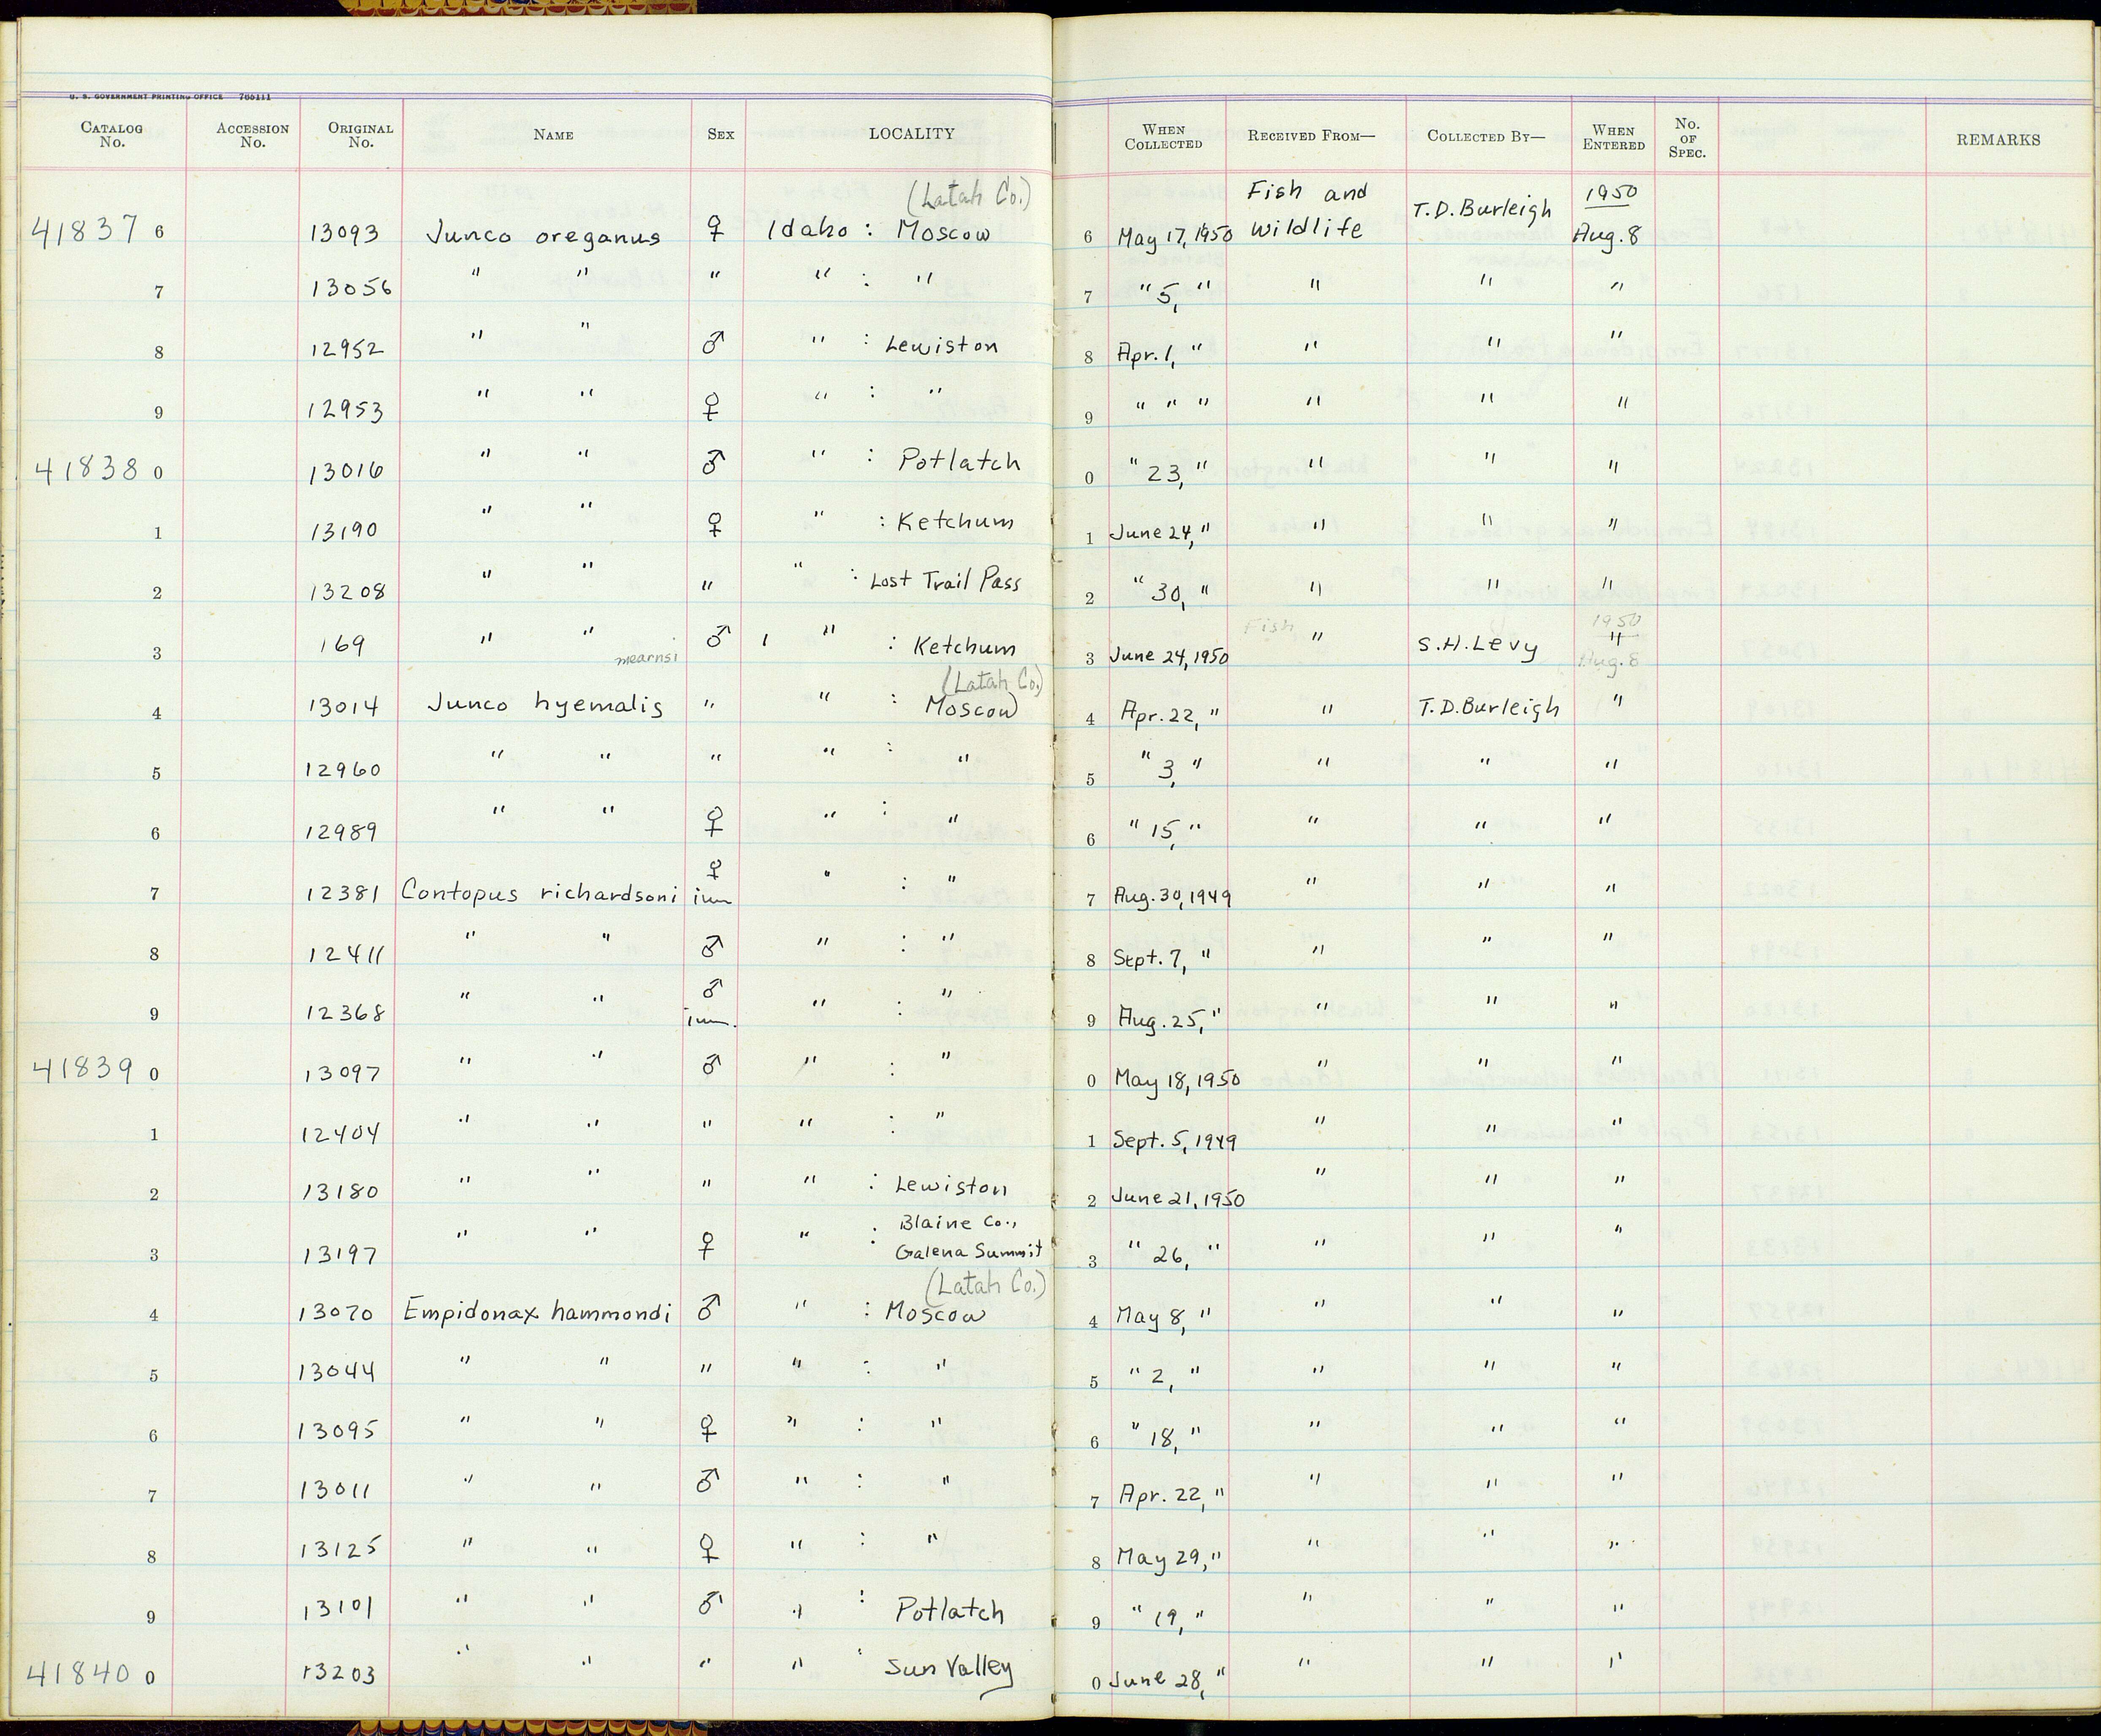 U. S. GOVERNMENT PRINTING OFFICE 765111
CATALOG No. ACCESSION No. ORIGINAL No. NAME SEX LOCALITY WHEN COLLECTED RECEIVED FROM— COLLECTED BY— WHEN ENTERED No. OF SPEC. REMARKS
(Latah Co.) Fish and 1950
41837 6 13093 Junco oreganus ♀ Idaho : Moscow 6 May 17, 1950 Wildlife T.D. Burleigh Aug. 8
7 13056 " " " " : " 7 " 5, " " " "
8 12952 " " ♂ " : Lewiston 8 Apr. 1, " " " "
9 12953 " " ♀ " : " 9 " " " " " "
41838 0 13016 " " ♂ " : Potlatch 0 " 23, " " " "
1 13190 " " ♀ " : Ketchum 1 June 24, " " " "
2 13208 " " " " : Lost Trail Pass 2 " 30, " " " "
Fish 1950
3 169 " " ♂ " : Ketchum 3 June 24, 1950 " S.H. Levy "
mearnsi Aug. 8
(Latah Co.)
4 13014 Junco hyemalis " " : Moscow 4 Apr. 22, " " T.D. Burleigh "
5 12960 " " " " : " 5 " 3, " " " "
6 12989 " " ♀ " : " 6 " 15, " " " "
7 12381 Contopus richardsoni ♀ im " : " 7 Aug. 30, 1949 " " "
8 12411 " " ♂ " : " 8 Sept. 7, " " " "
9 12368 " " ♂ im. " : " 9 Aug. 25, " " " "
41839 0 13097 " " ♂ " : " 0 May 18, 1950 " " "
1 12404 " " " " : " 1 Sept. 5, 1949 " " "
2 13180 " " " " : Lewiston 2 June 21, 1950 " " "
Blaine Co.,
3 13197 " " ♀ " : Galena Summit 3 " 26, " " " "
(Latah Co.)
4 13070 Empidonax hammondi ♂ " : Moscow 4 May 8, " " " "
5 13044 " " " " : " 5 " 2, " " " "
6 13095 " " ♀ " : " 6 " 18, " " " "
7 13011 " " ♂ " : " 7 Apr. 22, " " " "
8 13125 " " ♀ " : " 8 May 29, " " " "
9 13101 " " ♂ " : Potlatch 9 " 19, " " " "
41840 0 13203 " " " " ' Sun Valley 0 June 28, " " " "